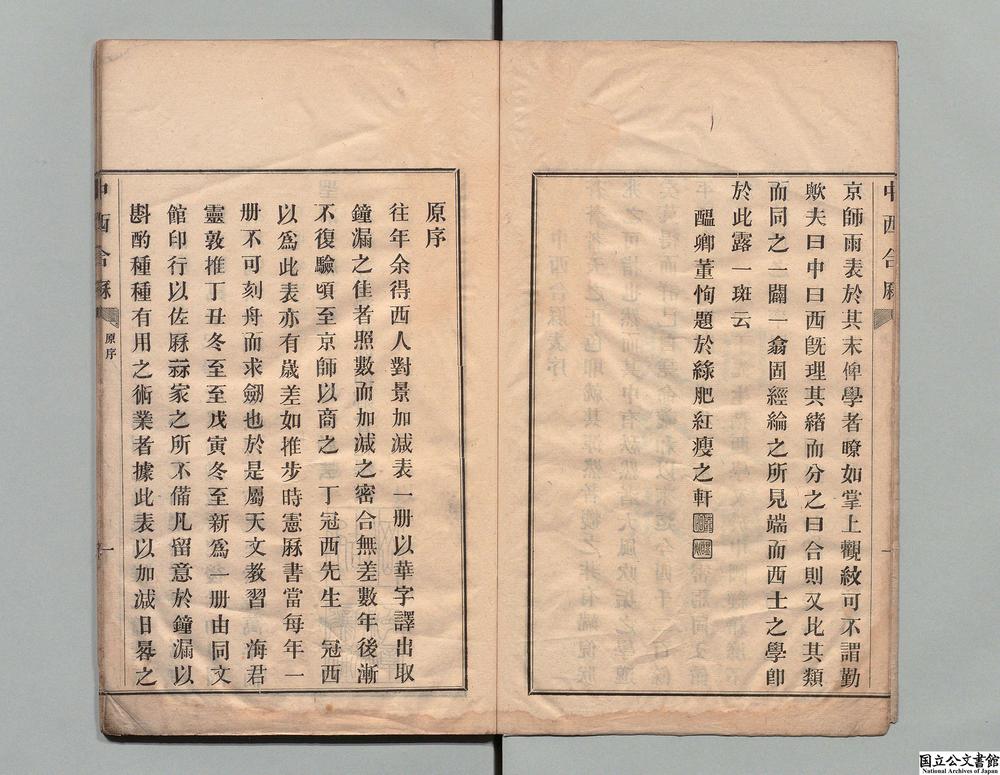 京師雨表於其末俾學者暸如掌上觀紋可不謂勤
歟夫曰中曰西旣理其緒而分之曰合則又比其類
而同之一闢一翕固經綸之所見端而西士之學卽
於此露一斑云
醞卿董恂題於綠肥紅瘦之軒
中西合厤
原序
一
原序
往年余得西人對景加減表一册以華字譯出取
鐘漏之佳者照數而加減之密合無差數年後漸
不復驗頃至京師以商之 丁冠西先生 冠西
以爲此表亦有歲差如推步時憲厤書當每年一
册不可刻舟而求劒也於是屬天文教習 海君
靈敦推丁丑冬至至戊寅冬至新爲一册由同文
館印行以佐厤祘家之所不備凡留意於鐘漏以
斟酌種種有用之術業者據此表以加減日晷之
国立公文書館
National Archives of Japan